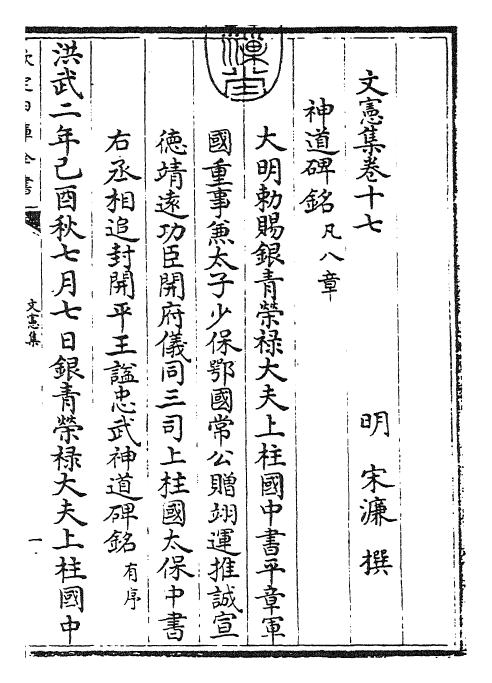 文憲集卷十七
明 宋濂 撰
神道碑銘凡八章
大明勅賜銀青榮祿大夫上柱國中書平章軍
國重事兼太子少保鄂國常公贈翊運推誠宣
德靖遠功臣開府儀同三司上柱國太保中書
右丞相追封開平王諡忠武神道碑銘有序
洪武二年己酉秋七月七日銀青榮祿大夫上柱國中
文憲集
一